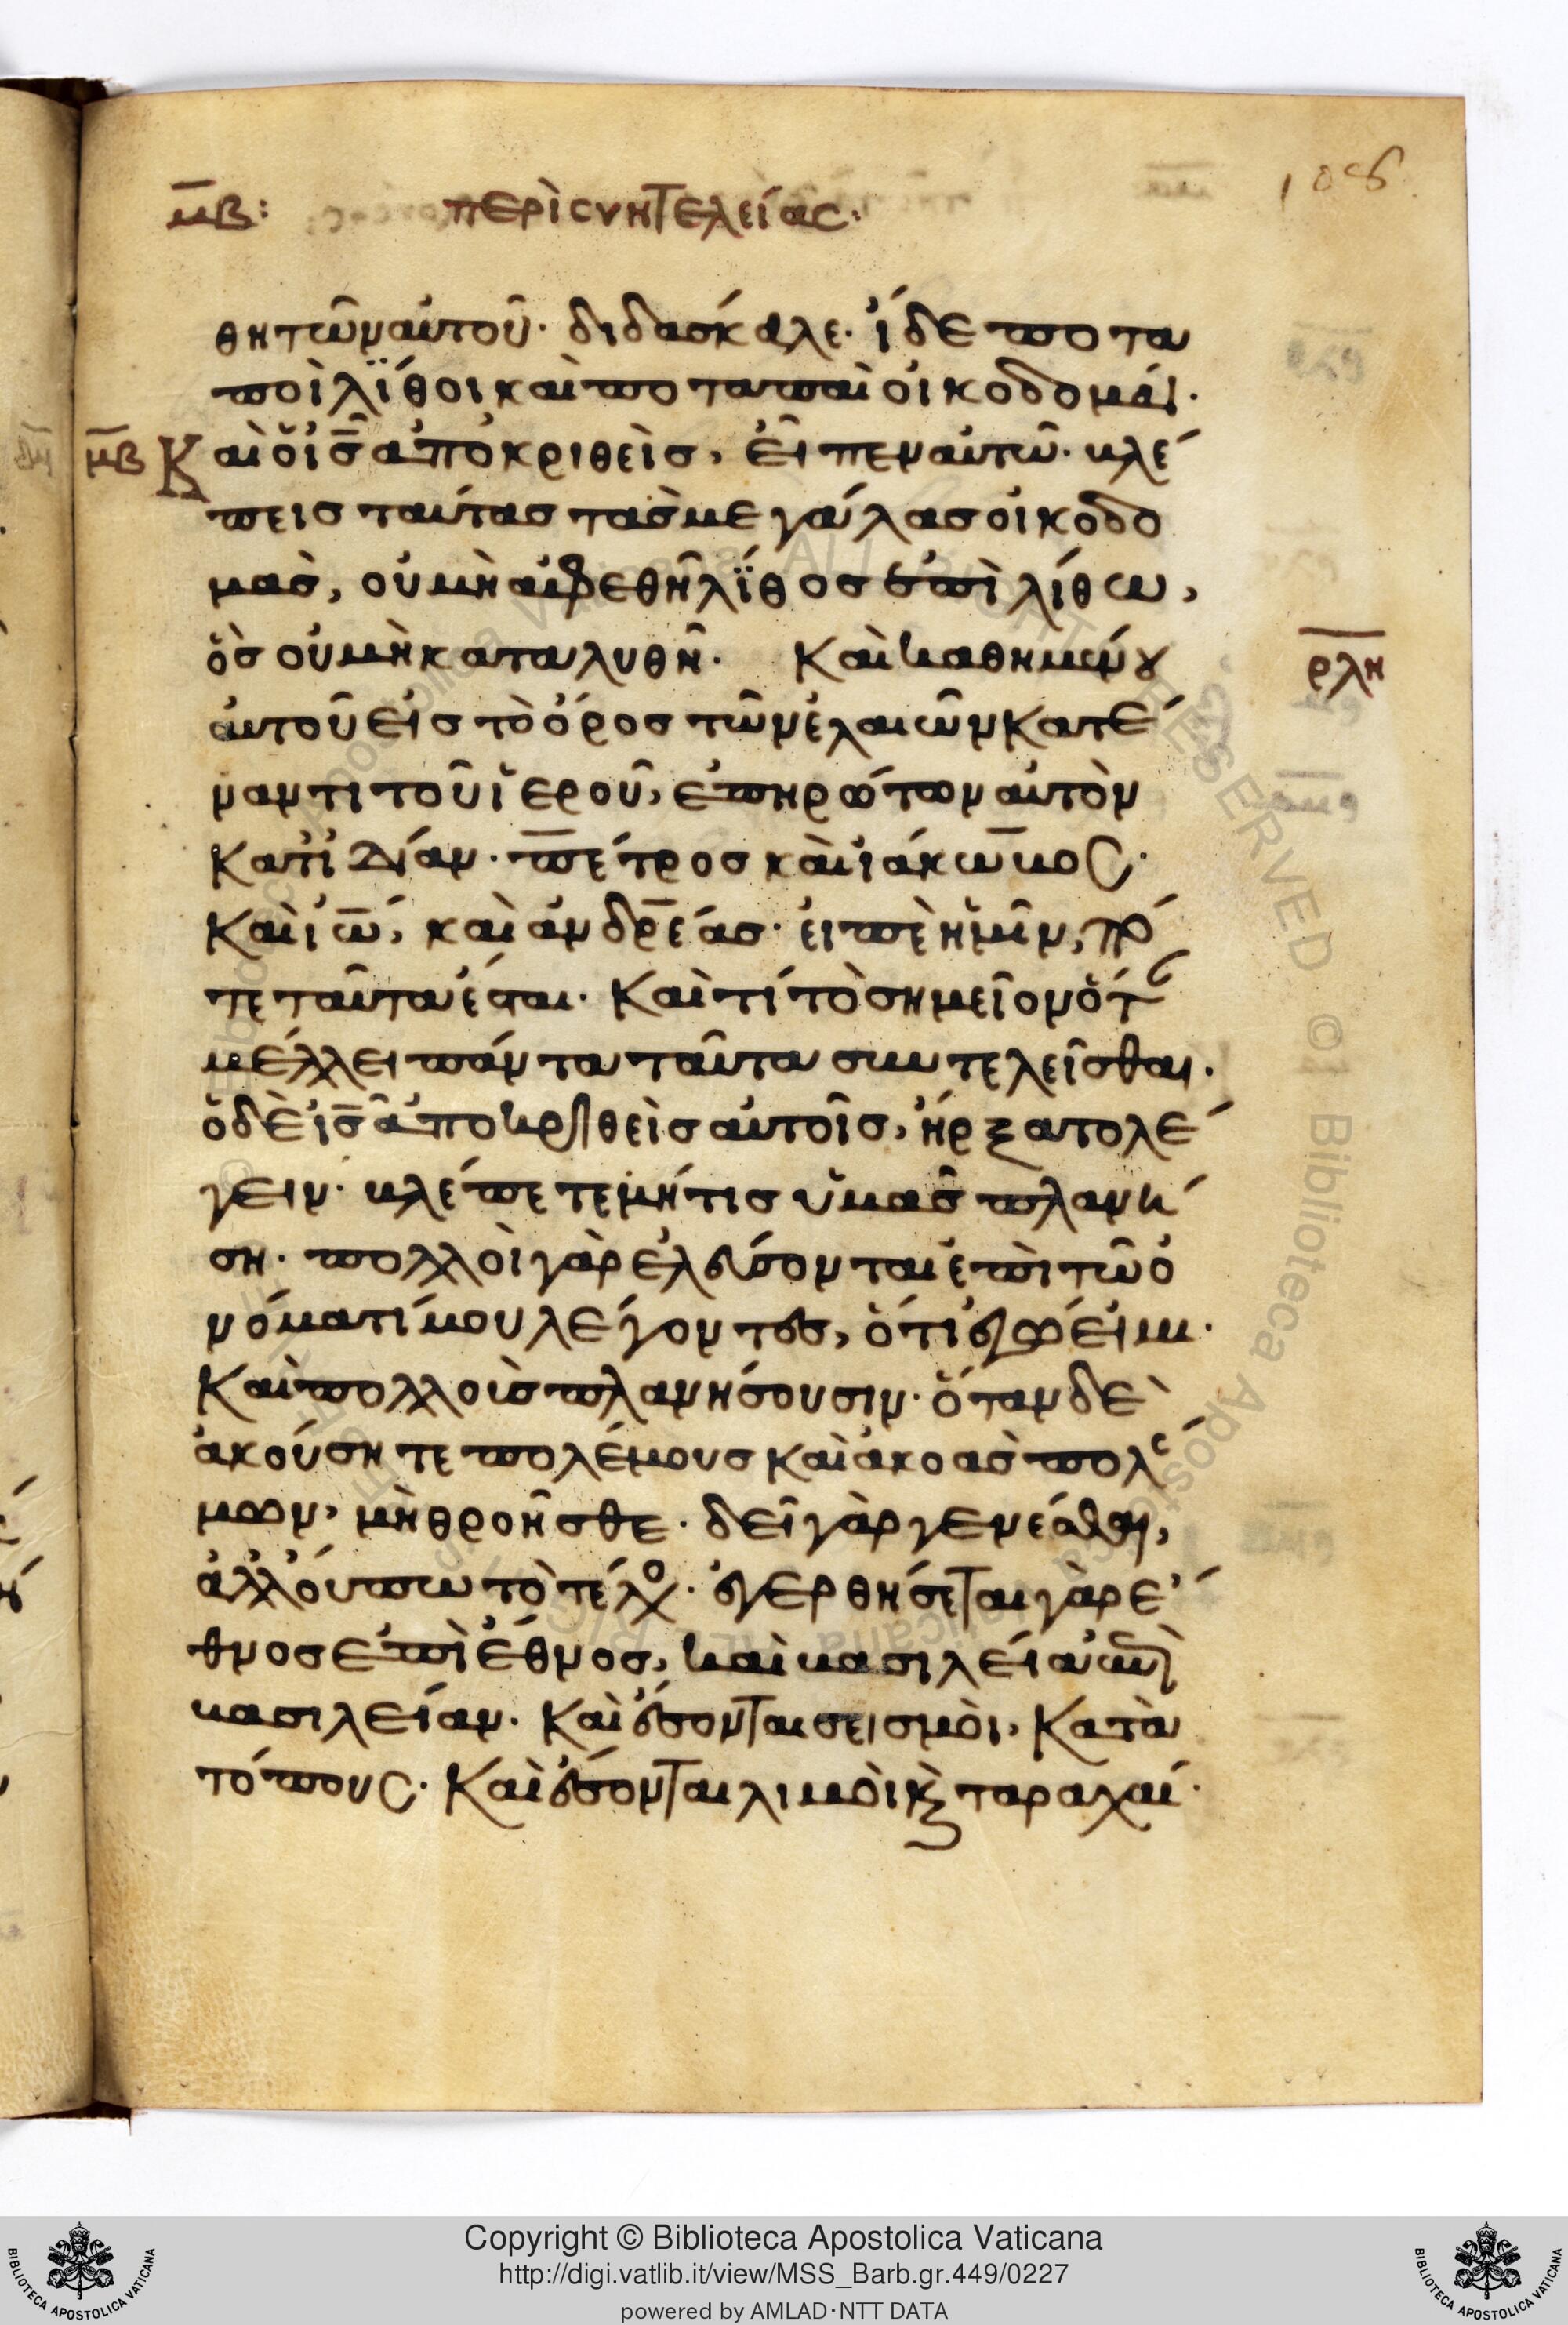 108
μβ: περὶ συντελείας·
θητῶν αὐτοῦ· διδασκάλε· ἴδε ποτα
ποὶ λίθοι καὶ ποταπαὶ οἰκοδομαί·
μβ Καὶ ὁ ις ἀποκριθεὶς, εἶπεν αὐτῶ· βλέ
πεις ταύτας τὰς μεγάλας οἰκοδο
μὰς, οὐ μὴ ἀφεθῆ λίθος ἐπὶ λίθω,
ὃς οὐ μὴ καταλυθῆ· Καὶ καθημένου
ρλη
αὐτοῦ εἰς τὸ ὄρος τῶν ἐλαιῶν κατέ
ναντι τοῦ ἱεροῦ, ἐπηρώτων αὐτὸν
κατ ἰδίαν· πέτρος καὶ ἰάκωβος·
Καὶ ιω, καὶ ἀνδρέας· εἰπὲ ἡμῖν, πό
τε ταῦτα ἔσται· Καὶ τί τὸ σημεῖον ὅτ
μέλλει πάντα ταῦτα συντελεῖσθαι·
ὁ δὲ ις ἀποκριθεὶς αὐτοῖς, ἤρξατο λέ
γειν· βλέπετε μή τις ὑμᾶς πλανή
ση· πολλοὶ γὰρ ἐλεύσονται ἐπὶ τῶ ὀ
νόματί μου λέγοντες, ὅτι ἐγώ εἰμι·
Καὶ πολλοὺς πλανήσουσιν· ὅταν δὲ
ἀκούσητε πολέμους καὶ ἀκοὰς πολέ
μων, μὴ θροῆσθε· δεῖ γὰρ γενέσθαι,
ἀλλ οὔπω τὸ τέλος· ἐγερθήσεται γὰρ ἔ
θνος ἐπὶ ἔθνος, καὶ βασιλεία ἐπὶ
βασιλείαν· Καὶ ἔσονται σεισμοὶ, Κατὰ
τόπους· Καὶ ἔσονται λιμοὶ κ ταραχαί·
Copyright © Biblioteca Apostolica Vaticana
http://digi.vatlib.it/view/MSS_Barb.gr.449/0227
powered by AMLAD·NTT DATA
BIBLIOTECA APOSTOLICA VATICANA
BIBLIOTECA APOSTOLICA VATICANA